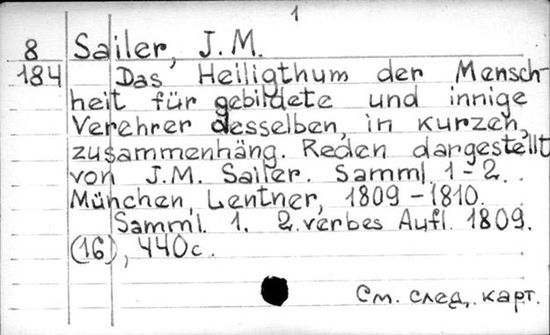 1
8 Sailer, J.M.
184 Das Heiligthum der Mensch-
heit für gebildete und innige
Verehrer desselben, in kurzen,
zusammenhäng. Reden dargestellt
von J.M. Sailer. Samml. 1-2.
München, Lentner, 1809-1810.
Samml. 1. 2. verbes Aufl. 1809.
(16), 440c.
См. след. карт.